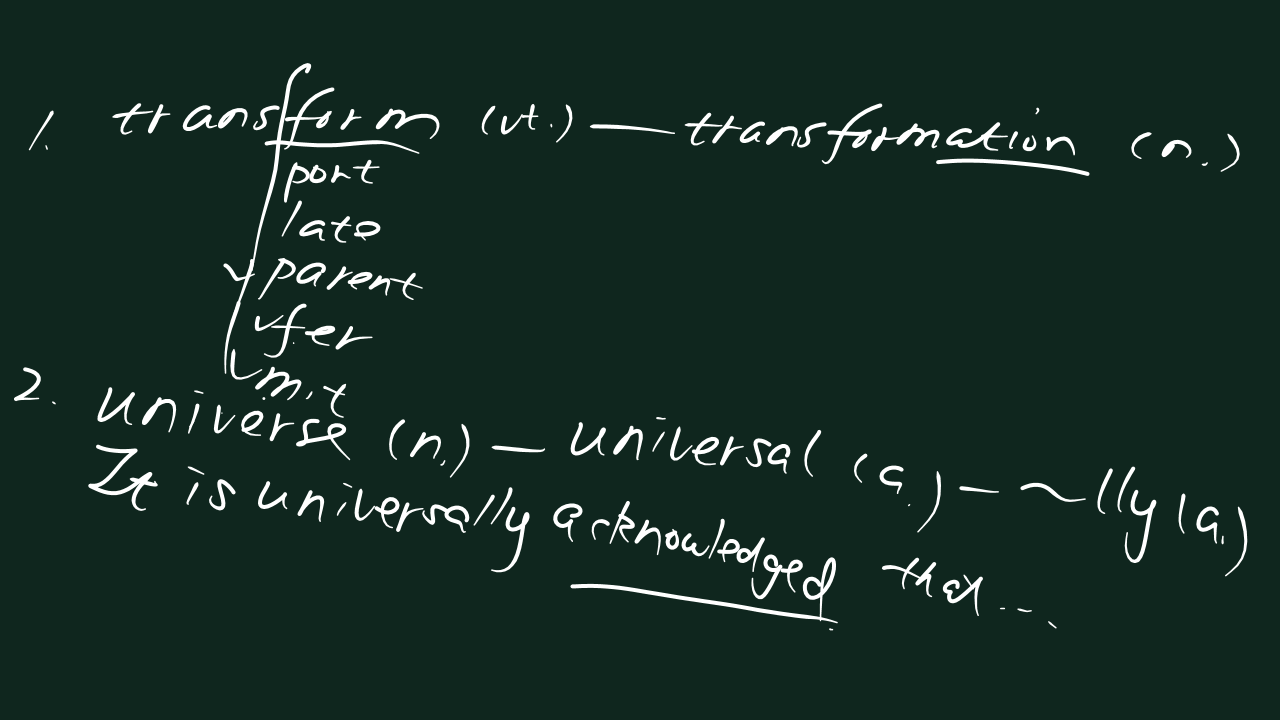 1. transform (vt.) — transformation (n.)
port
late
parent
fer
mit
2. universe (n.) — universal (a.) — ~lly (a.)
It is universally acknowledged that...